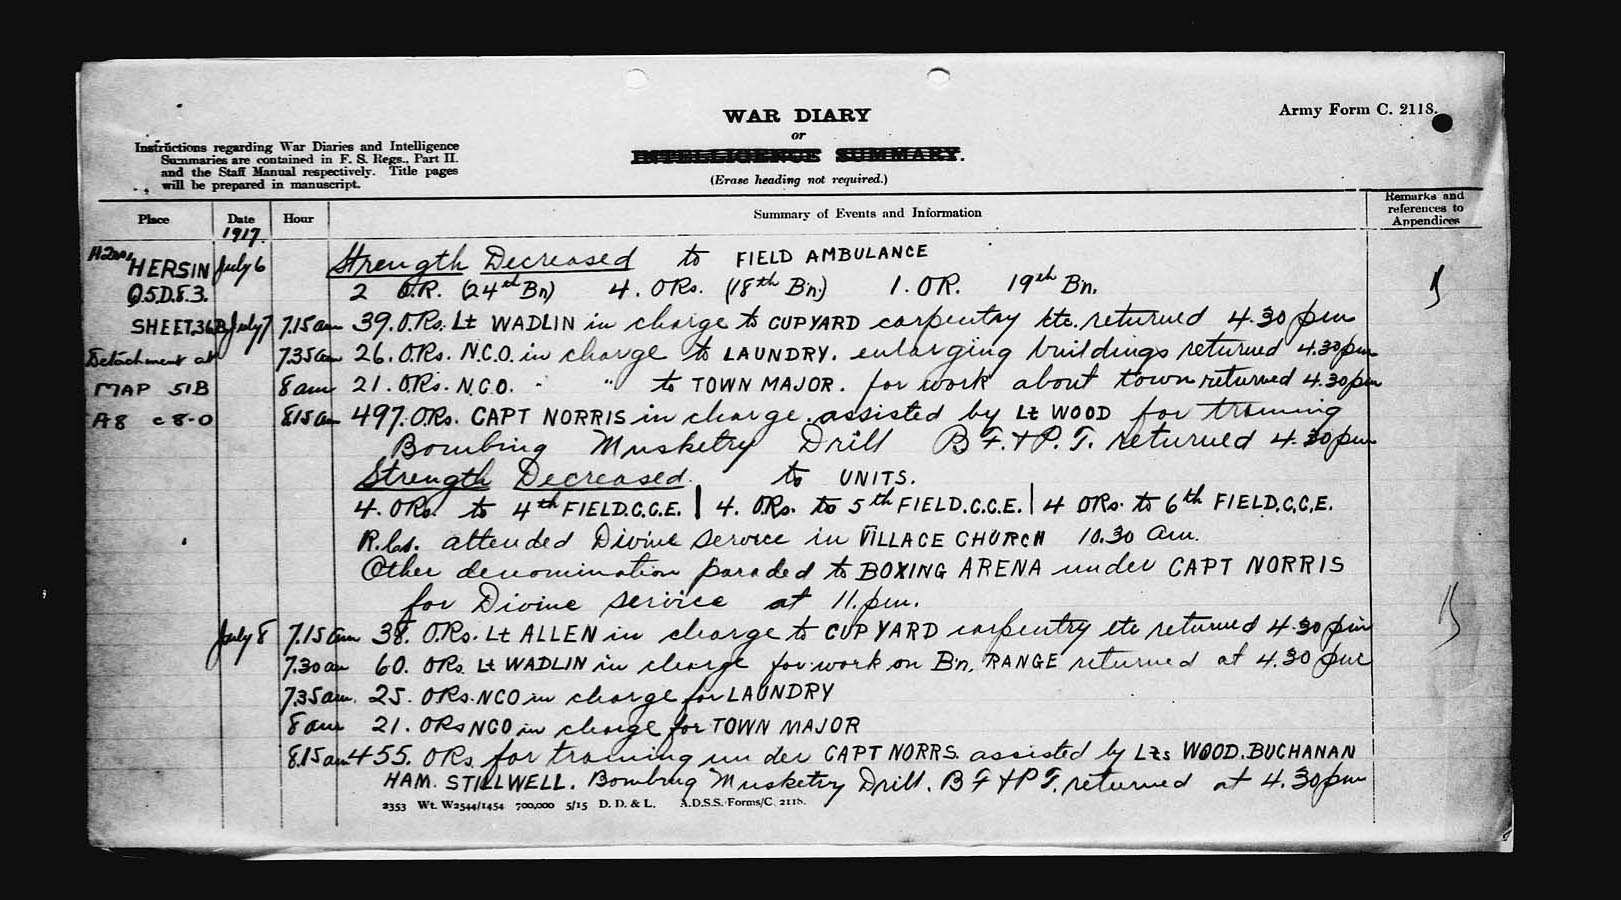 Army Form C. 2118.
WAR DIARY
or
INTELLIGENCE SUMMARY.
(Erase heading not required.)
Instructions regarding War Diaries and Intelligence
Summaries are contained in F. S. Regs., Part II.
and the Staff Manual respectively. Title pages
will be prepared in manuscript.
Place Date Hour Summary of Events and Information Remarks and references to Appendices
1917.
HERSIN July 6 Strength Decreased to FIELD AMBULANCE
Q.5.D.8.3. 2 O.R. (24th Bn) 4. ORs. (18th Bn) 1. OR. 19th Bn.
SHEET.36B July 7 7.15 am 39. O.Rs. Lt WADLIN in charge to CUPYARD carpentry etc. returned 4.30 pm
Detachment at 7.35 am 26. O.Rs. N.C.O. in charge to LAUNDRY. enlarging buildings returned 4.30 pm
MAP 51B 8 am 21. ORs. N.C.O. " " to TOWN MAJOR. for work about town returned 4.30 pm
A8 c 8-0 8.15 am 497. O.Rs. CAPT NORRIS in charge. assisted by Lt WOOD for training
Bombing Musketry Drill B F. & P. T. returned 4.30 pm
Strength Decreased to UNITS.
4. ORs. to 4th FIELD.C.C.E. | 4. O.Rs. to 5th FIELD.C.C.E. | 4 ORs. to 6th FIELD.C.C.E.
R.Cs. attended Divine service in VILLAGE CHURCH 10.30 am.
Other denomination paraded to BOXING ARENA under CAPT NORRIS
for Divine service at 11. pm.
July 8 7.15 am 38. O.Rs. Lt ALLEN in charge to CUPYARD carpentry etc returned 4.30 pm
7.30 am 60. ORs. Lt WADLIN in charge for work on Bn. RANGE returned at 4.30 pm
7.35 am. 25. ORs. NCO in charge for LAUNDRY
8 am 21. ORs NCO in charge for TOWN MAJOR
8.15 am 455. ORs. for training under CAPT NORRS. assisted by Lts WOOD. BUCHANAN
HAM. STILLWELL. Bombing Musketry Drill. B F & P T. returned at 4.30 pm
2353 Wt. W2544/1454 700,000 5/15 D. D. & L. A.D.S.S./Forms/C. 2118.